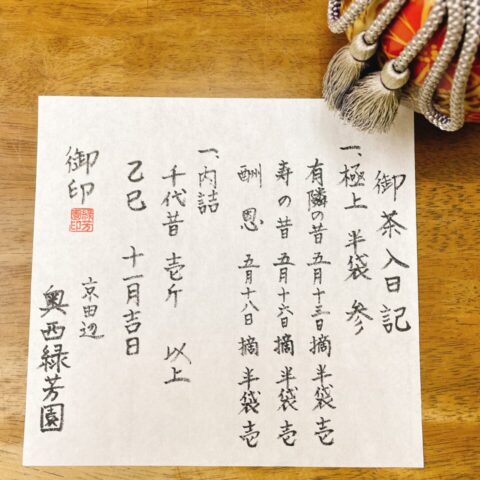 御茶入日記
一、極上 半袋 参
有隣の昔 五月十三日摘 半袋 壱
寿の昔 五月十六日摘 半袋 壱
酬恩 五月十八日摘 半袋 壱
一、内詰
千代昔 壱斤 以上
乙巳 十一月吉日
御印
京田辺
奥西緑芳園